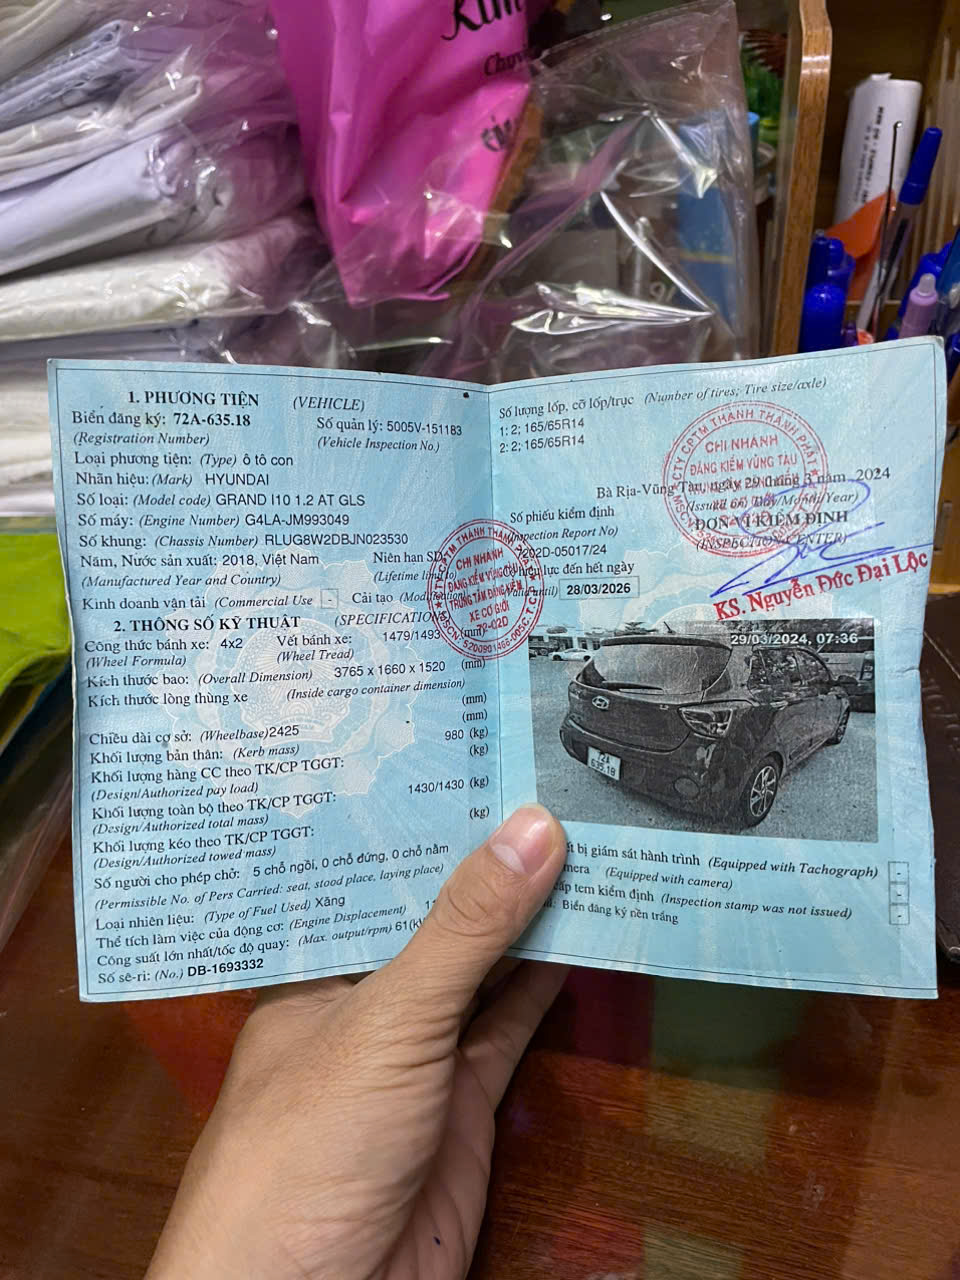 Chuy
1. PHƯƠNG TIỆN (VEHICLE)
Biển đăng ký: 72A-635.18 Số quản lý: 5005V-151183
(Registration Number) (Vehicle Inspection No.)
Loại phương tiện: (Type) ô tô con
Nhãn hiệu: (Mark) HYUNDAI
Số loại: (Model code) GRAND I10 1.2 AT GLS
Số máy: (Engine Number) G4LA-JM993049
Số khung: (Chassis Number) RLUG8W2DBJN023530
Năm, Nước sản xuất: 2018, Việt Nam Niên hạn SD:
(Manufactured Year and Country) (Lifetime limit to)
Kinh doanh vận tải (Commercial Use - Cải tạo (Modification)
2. THÔNG SỐ KỸ THUẬT (SPECIFICATION)
Công thức bánh xe: 4x2 Vết bánh xe: 1479/1493 (mm)
(Wheel Formula) (Wheel Tread)
Kích thước bao: (Overall Dimension) 3765 x 1660 x 1520 (mm)
Kích thước lòng thùng xe (Inside cargo container dimension)
(mm)
Chiều dài cơ sở: (Wheelbase) 2425 (mm)
Khối lượng bản thân: (Kerb mass) 980 (kg)
Khối lượng hàng CC theo TK/CP TGGT: (kg)
(Design/Authorized pay load)
Khối lượng toàn bộ theo TK/CP TGGT: 1430/1430 (kg)
(Design/Authorized total mass)
Khối lượng kéo theo TK/CP TGGT: (kg)
(Design/Authorized towed mass)
Số người cho phép chở: 5 chỗ ngồi, 0 chỗ đứng, 0 chỗ nằm
(Permissible No. of Pers Carried: seat, stood place, laying place)
Loại nhiên liệu: (Type of Fuel Used) Xăng
Thể tích làm việc của động cơ: (Engine Displacement)
Công suất lớn nhất/tốc độ quay: (Max. output/rpm) 61(k
Số sê-ri: (No.) DB-1693332
Số lượng lốp, cỡ lốp/trục (Number of tires; Tire size/axle)
1: 2; 165/65R14
2: 2; 165/65R14
Bà Rịa-Vũng Tàu, ngày 29 tháng 3 năm 2024
(Issued on: Day/Month/Year)
Số phiếu kiểm định ĐƠN VỊ KIỂM ĐỊNH
(Inspection Report No) (INSPECTION CENTER)
7202D-05017/24
Có hiệu lực đến hết ngày
(Valid until) 28/03/2026
KS. Nguyễn Đức Đại Lộc
CTY CPTM THÀNH THÀNH PHÁT
CHI NHÁNH
ĐĂNG KIỂM VŨNG TÀU
CTY CPTM THÀNH THÀNH PHÁT
CHI NHÁNH
ĐĂNG KIỂM VŨNG TÀU
TRUNG TÂM ĐĂNG KIỂM
XE CƠ GIỚI
72-02D
29/03/2024, 07:36
2A
635.18
ết bị giám sát hành trình (Equipped with Tachograph) -
mera (Equipped with camera) -
cấp tem kiểm định (Inspection stamp was not issued) -
Biển đăng ký nền trắng